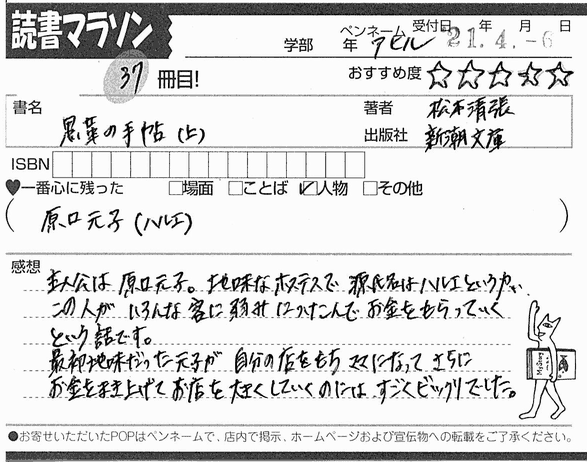 読書マラソン
学部 年 ペンネーム アビル 受付日 年 月 日
21.4.-6
37 冊目!
おすすめ度 ☆☆☆☆☆
書名
黒革の手帖(上)
著者 松本清張
出版社 新潮文庫
ISBN
♥一番心に残った □場面 □ことば ☑人物 □その他
(原口元子(ハルエ))
感想
主人公は原口元子。地味なホステスで源氏名はハルエという
この人がいろんな客に弱みにつけこんでお金をもらっていく
という話です。
最初地味だった元子が自分の店をもちママになってさらに
お金をまき上げてお店を大きくしていくのにはすごくビックリでした。
Mystery
●お寄せいただいたPOPはペンネームで、店内で掲示、ホームページおよび宣伝物への転載をご了承ください。